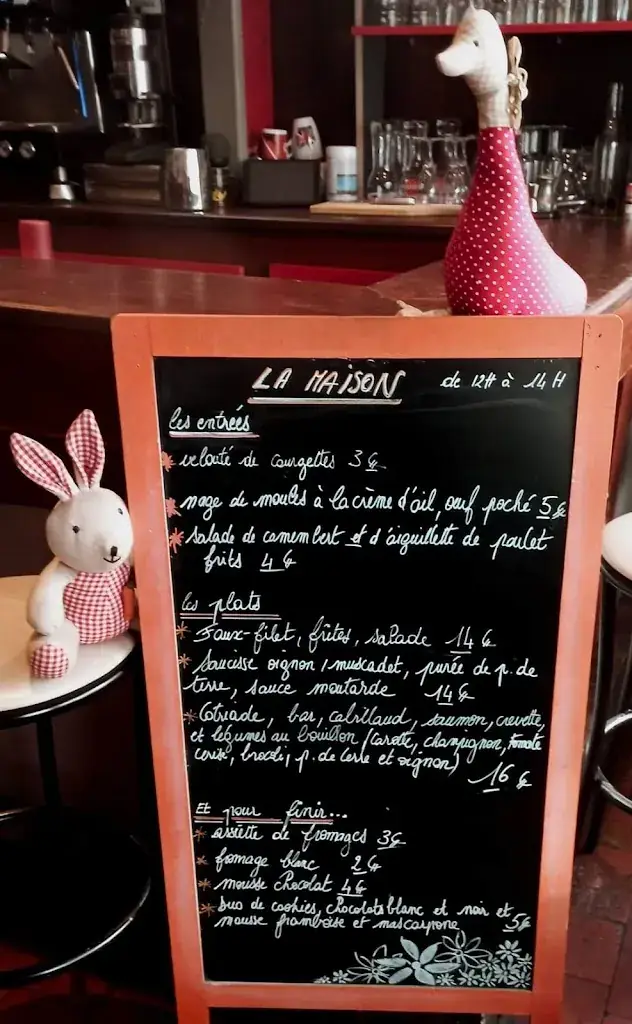 LA MAISON de 12H à 14H
les entrées
* velouté de courgettes 3€
* nage de moules à la crème d'ail, œuf poché 5€
* salade de camembert et d'aiguillette de poulet
frits 4€
les plats
* Faux-filet, frites, salade 14€
* Saucisse oignon/muscadet, purée de p. de
terre, sauce moutarde 14€
* Cotriade, bar, cabillaud, saumon, crevette,
et légumes au bouillon (carotte, champignon, tomate
cerise, brocoli, p. de terre et oignon)
16€
Et pour finir...
* assiette de fromages 3€
* fromage blanc 2€
* mousse chocolat 4€
* Duo de cookies, chocolats blanc et noir et
mousse framboise et mascarpone 5€